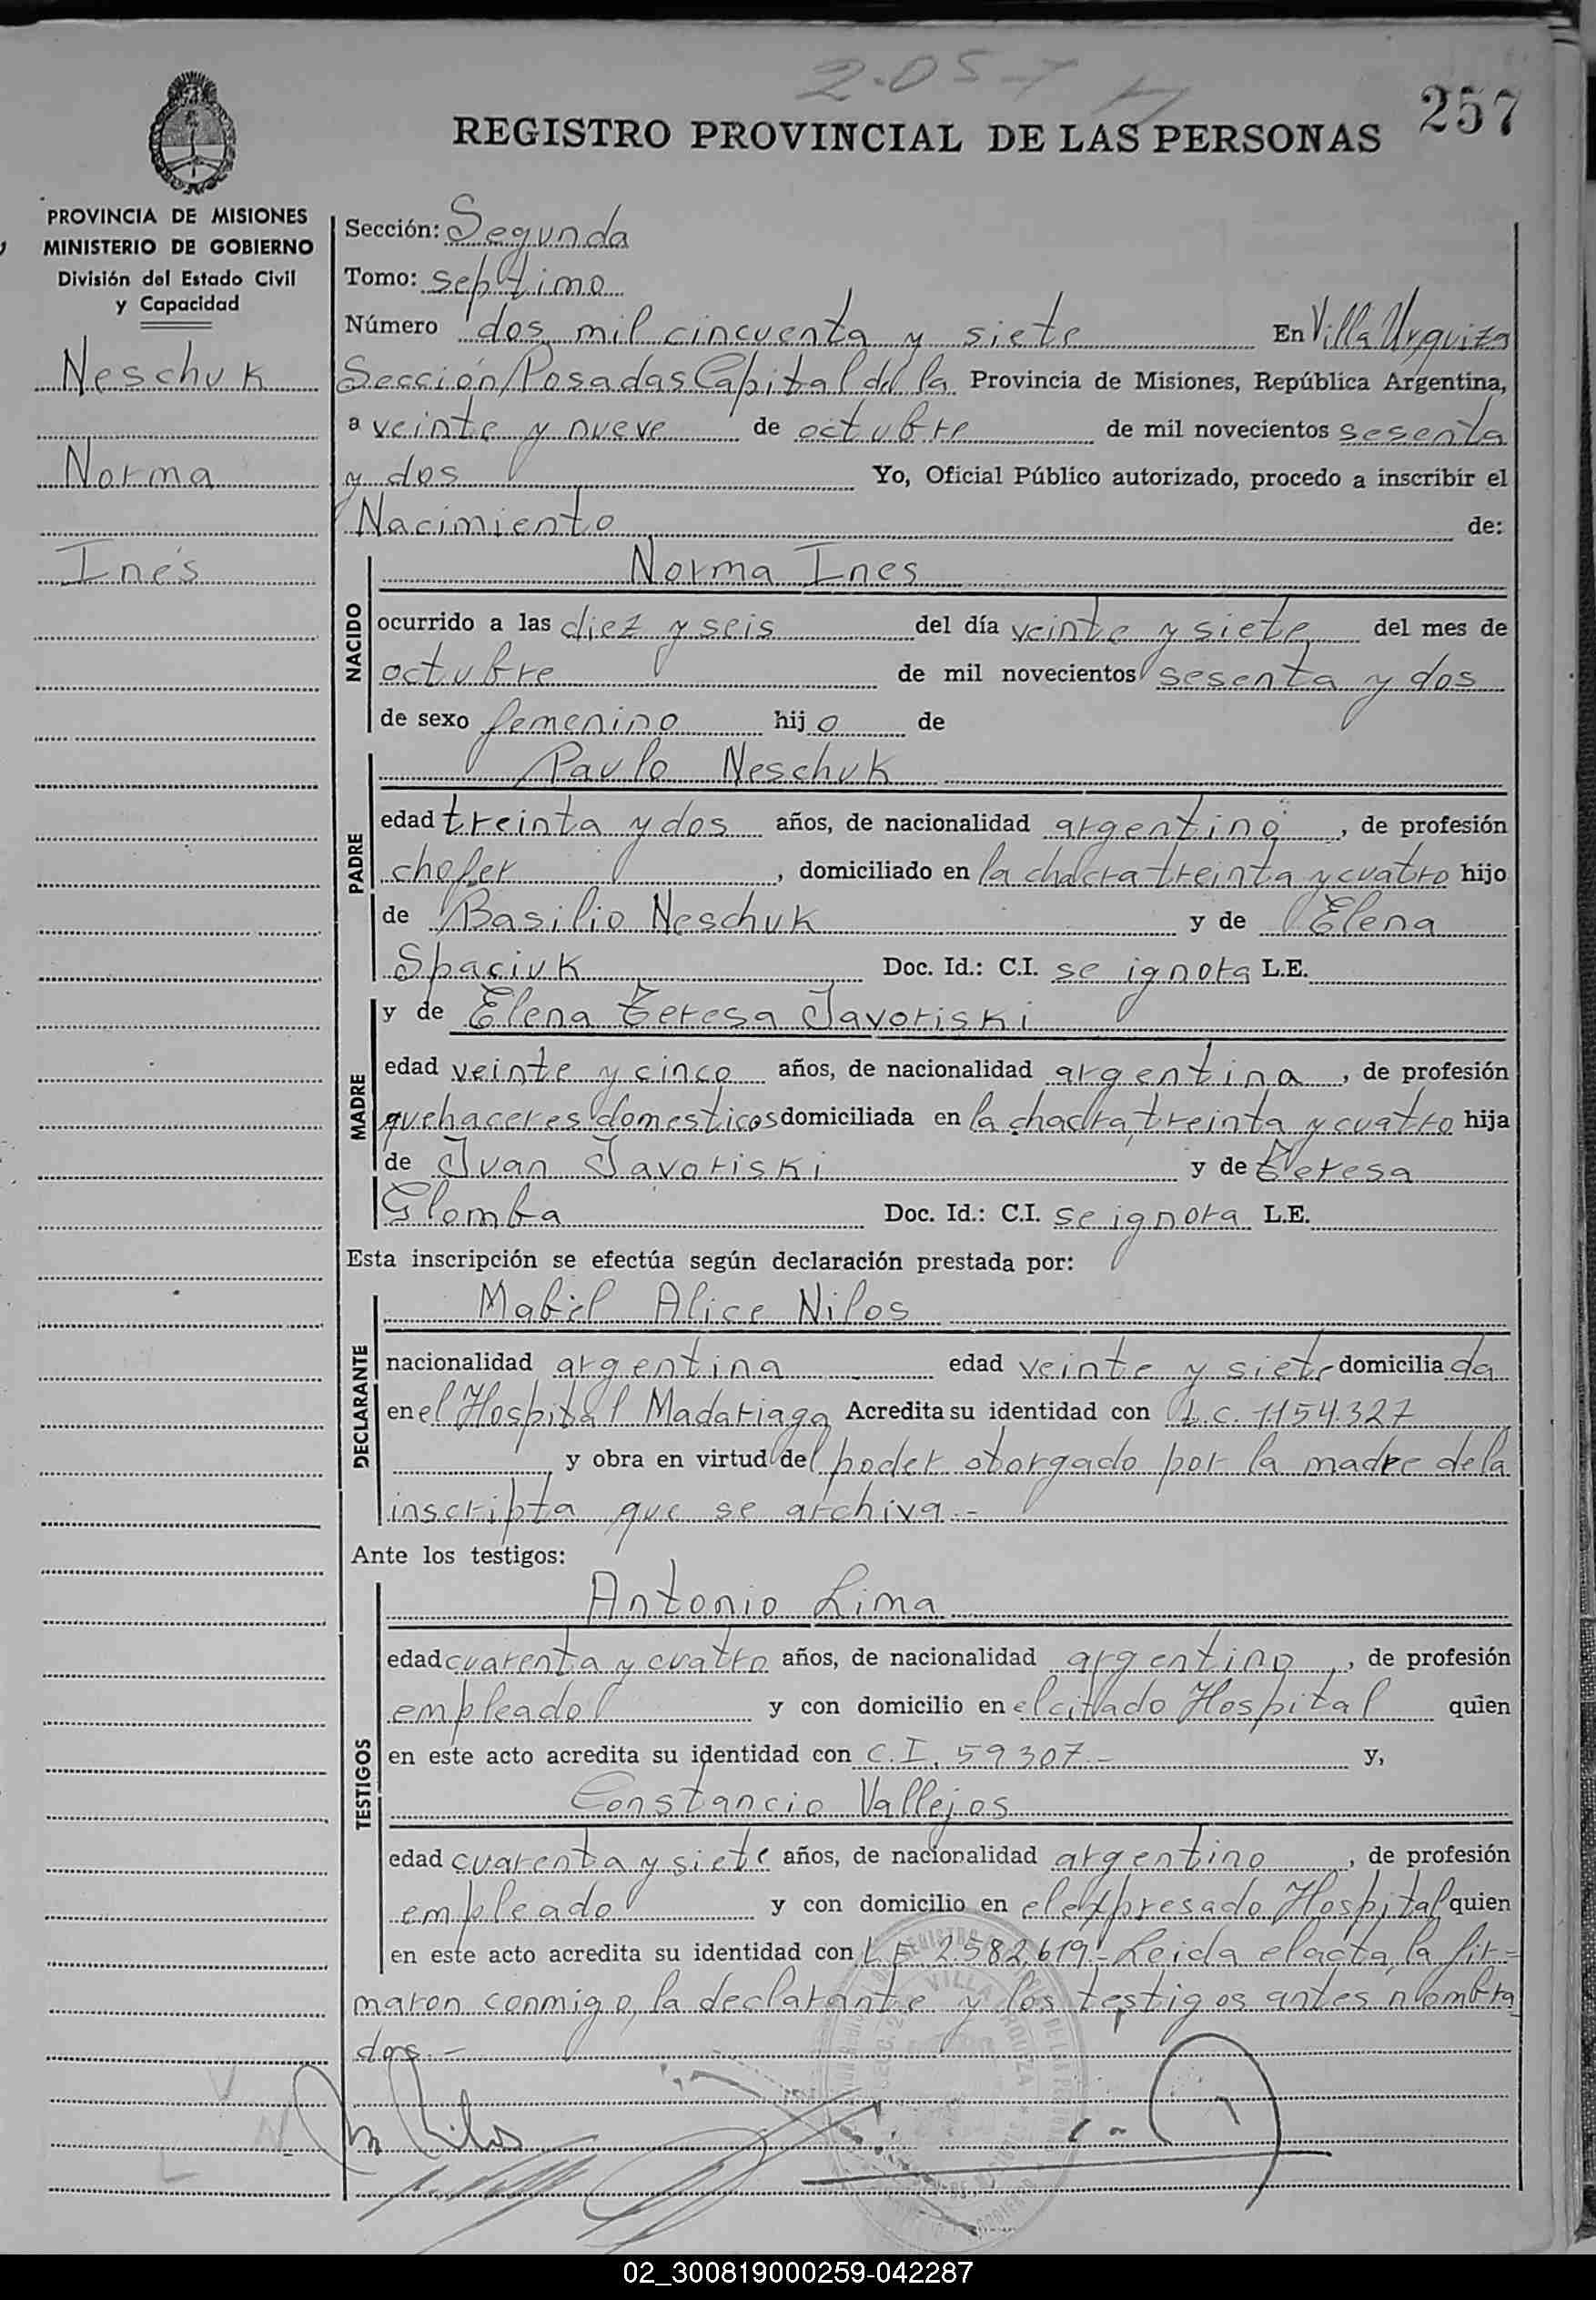 2057
257
REGISTRO PROVINCIAL DE LAS PERSONAS
PROVINCIA DE MISIONES
MINISTERIO DE GOBIERNO
División del Estado Civil
y Capacidad
Neschuk
Norma
Inés
Sección: Segunda
Tomo: septimo
Número dos mil cincuenta y siete En Villa Urquiza
Sección Posadas Capital de la Provincia de Misiones, República Argentina,
a veinte y nueve de octubre de mil novecientos sesenta
y dos Yo, Oficial Público autorizado, procedo a inscribir el
Nacimiento de:
NACIDO
Norma Ines
ocurrido a las diez y seis del día veinte y siete del mes de
octubre de mil novecientos sesenta y dos
de sexo femenino hijo de
PADRE
Paulo Neschuk
edad treinta y dos años, de nacionalidad argentino, de profesión
chofer, domiciliado en la chacra treinta y cuatro hijo
de Basilio Neschuk y de Elena
Spaciuk Doc. Id.: C.I. se ignora L.E.
MADRE
y de Elena Teresa Javoriski
edad veinte y cinco años, de nacionalidad argentina, de profesión
quehaceres domesticos domiciliada en la chacra treinta y cuatro hija
de Juan Javoriski y de Teresa
Glomba Doc. Id.: C.I. se ignora L.E.
Esta inscripción se efectúa según declaración prestada por:
DECLARANTE
Mabel Alice Nilos
nacionalidad argentina edad veinte y siete domiciliada
en el Hospital Madariaga Acredita su identidad con L.C. 1154.327
y obra en virtud del poder otorgado por la madre de la
inscripta que se archiva.-
Ante los testigos:
TESTIGOS
Antonio Lima
edad cuarenta y cuatro años, de nacionalidad argentino, de profesión
empleado y con domicilio en el citado Hospital quien
en este acto acredita su identidad con C.I. 59307.- y,
Constancio Vallejos
edad cuarenta y siete años, de nacionalidad argentino, de profesión
empleado y con domicilio en el expresado Hospital quien
en este acto acredita su identidad con L.E. 2.582.619.- Leida el acta, la fir=
maron conmigo, la declarante y los testigos antes nombra
dos.-
02_300819000259-042287